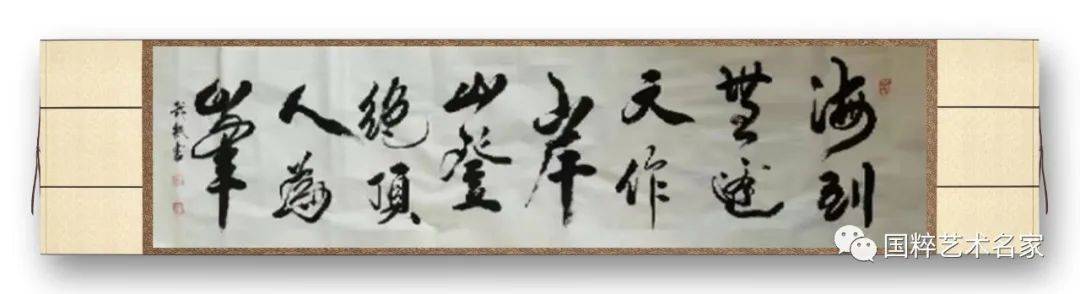 海到
無邊
天作
岸
山登
絶頂
人為
峯
書
国粹艺术名家